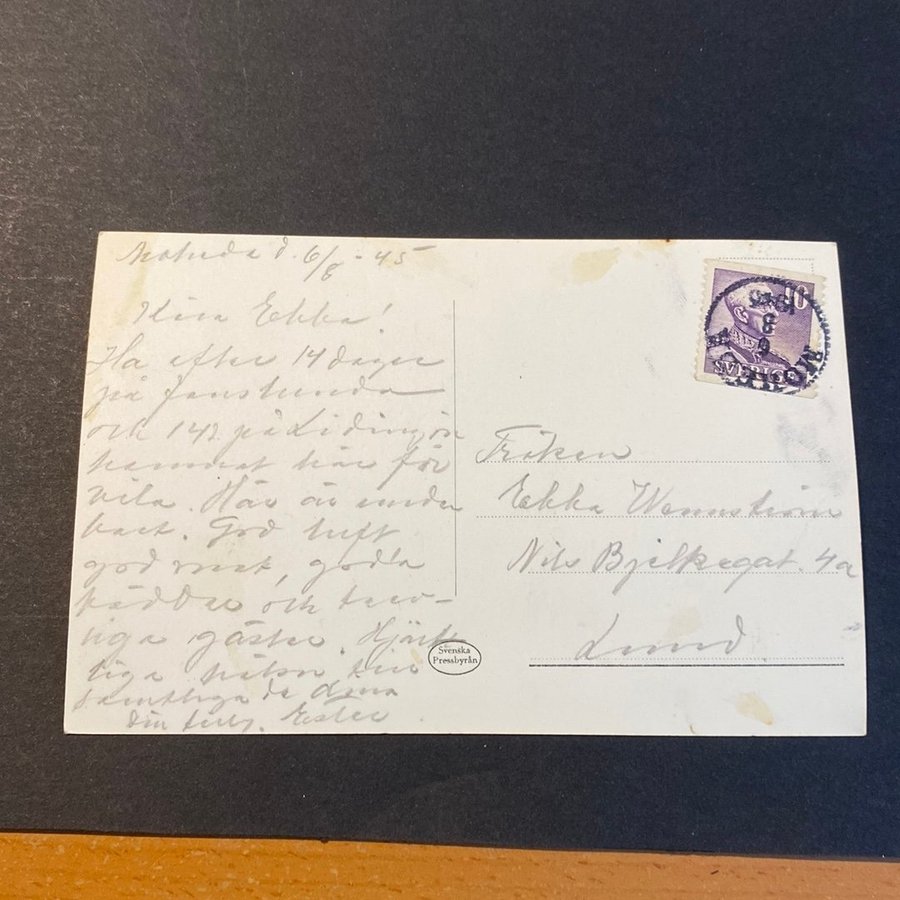 d. 6/8 - 45
Kära Ebba!
Ha efter 14 dagar
på
och 14 på Lidingön
kommat här för
vila. Här är under
bart. God luft
god mat, goda
bäddar och trev-
liga gäster. Hjärt
liga hälsn till
samtliga de dina
din Ester
10
SVERIGE
1945
8
6
Fröken
Ebba Wennström
Nils Bjelkegat. 4a
Lund
Svenska
Pressbyrån